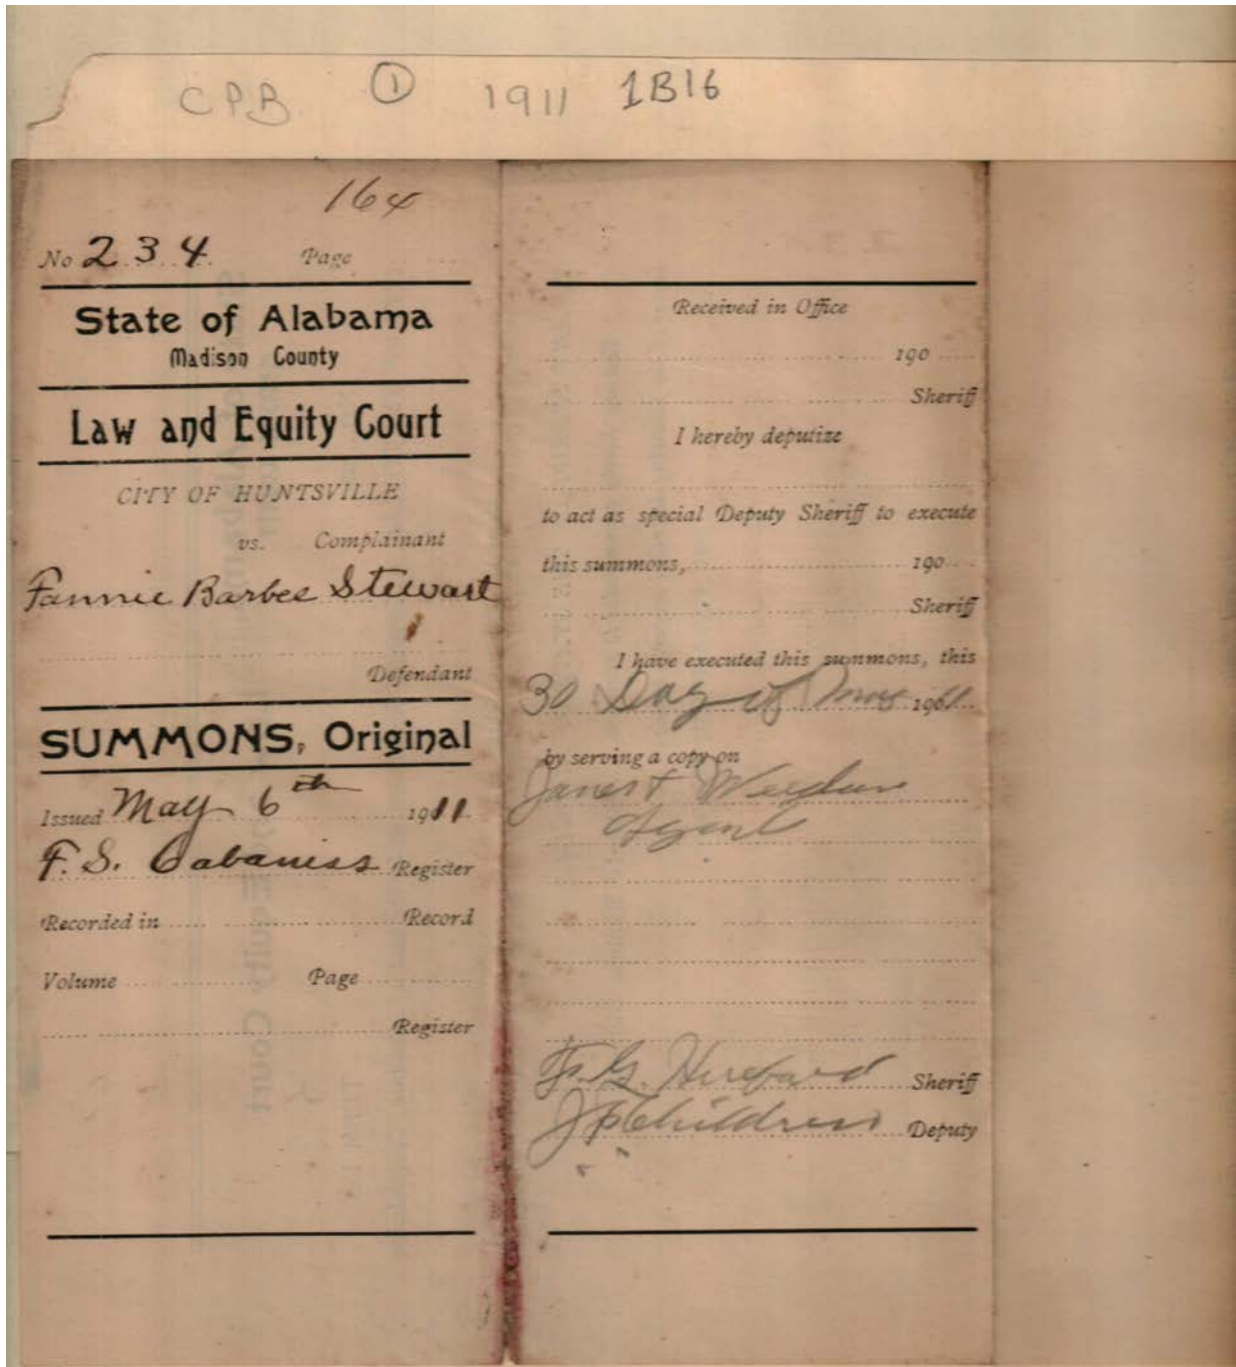 CPB ① 1911 1B16
164
No 234. Page
State of Alabama
Madison County
Law and Equity Court
CITY OF HUNTSVILLE
vs. Complainant
Fannie Barbee Stewart
Defendant
SUMMONS, Original
Issued May 6th 1911.
F. S. Cabaniss Register
Recorded in Record
Volume Page
Register
Received in Office
190
Sheriff
I hereby deputize
to act as special Deputy Sheriff to execute
this summons, 190
Sheriff
I have executed this summons, this
30 Day of 1911.
by serving a copy on
Weeden
Agent
Sheriff
J P Childress Deputy